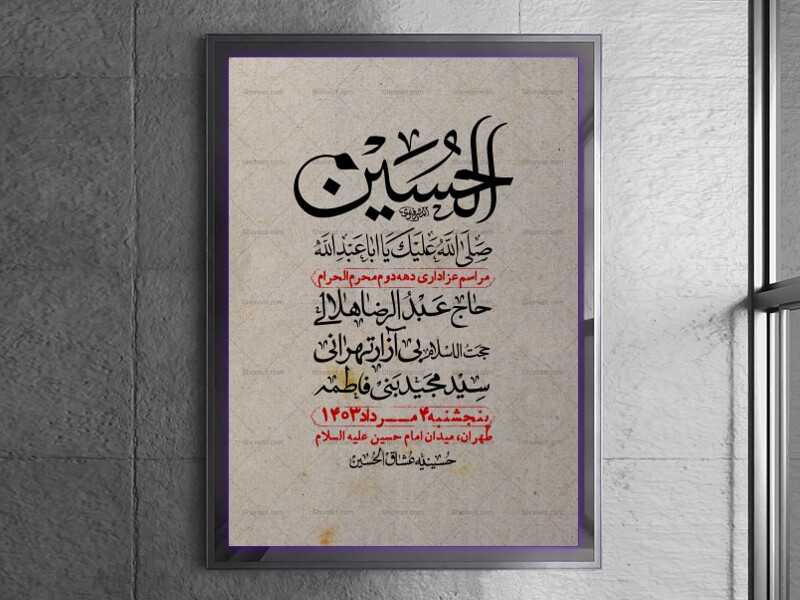 الحُسَین
صَلَی اللّهُ عَلَیْكَ یا اَبا عَبْدِ اللّه
مراسم عزاداری دهه دوم محرم الحرام
حاج عَبْدُ الرضا هلالی
حجت الاسلام بی آزار تهرانی
سید مجید بنی فاطمه
پنجشنبه ۴ مرداد ۱۴۰۳
طهران، میدان امام حسین علیه السلام
حسینیه عشاق الحسین